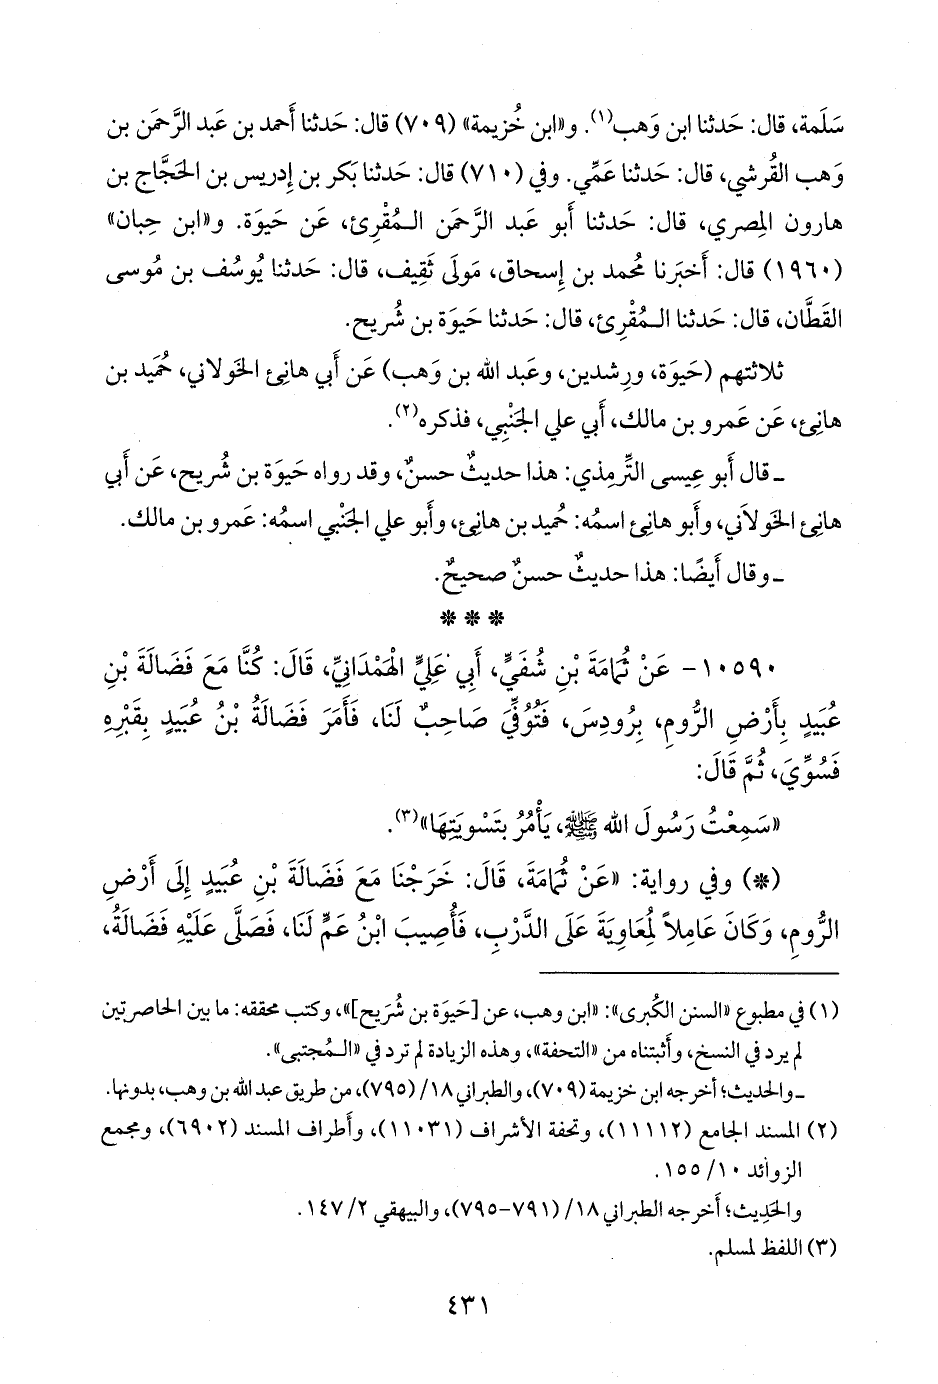 سَلَمة، قال: حَدثنا ابن وَهب(١). و«ابن خُزيمة» (٧٠٩) قال: حَدثنا أَحمد بن عَبد الرَّحمَن بن
وَهب القُرشي، قال: حَدثنا عَمِّي. وفي (٧١٠) قال: حَدثنا بَكر بن إِدريس بن الحَجَّاج بن
هارون المِصري، قال: حَدثنا أَبو عَبد الرَّحمَن الـمُقْرِئ، عَن حَيوَة. و«ابن حِبان»
(١٩٦٠) قال: أَخبَرنا مُحمد بن إِسحاق، مَولَى ثَقِيف، قال: حَدثنا يُوسُف بن مُوسى
القَطَّان، قال: حَدثنا الـمُقْرِئ، قال: حَدثنا حَيوَة بن شُريح.
ثلاثتهم (حَيوَة، ورِشدين، وعَبد الله بن وَهب) عَن أَبي هانِئ الخَولاني، حُمَيد بن
هانِئ، عَن عَمرو بن مالك، أَبي علي الجَنْبِي، فذكره(٢).
ـ قال أَبو عِيسى التِّرمِذي: هذا حديثٌ حسنٌ، وقد رواه حَيوَة بن شُريح، عَن أَبي
هانِئ الخَولاَني، وأَبو هانِئ اسمُه: حُميد بن هانِئ، وأَبو علي الجَنْبي اسمُه: عَمرو بن مالك.
ـ وقال أَيضًا: هذا حديثٌ حسنٌ صحيحٌ.
* * *
١٠٥٩٠- عَنْ ثُمَامَةَ بْنِ شُفَيٍّ، أَبِي عَلِيٍّ الْهَمْدَانِيِّ، قَالَ: كُنَّا مَعَ فَضَالَةَ بْنِ
عُبَيدٍ بِأَرْضِ الرُّومِ، بِرُودِسَ، فَتُوُفِّيَ صَاحِبٌ لَنَا، فَأَمَرَ فَضَالَةُ بْنُ عُبَيدٍ بِقَبْرِهِ
فَسُوِّيَ، ثُمَّ قَالَ:
«سَمِعْتُ رَسُولَ الله ﷺ، يَأْمُرُ بِتَسْوِيَتِهَا»(٣).
(*) وفي رواية: «عَنْ ثُمَامَةَ، قَالَ: خَرَجْنَا مَعَ فَضَالَةَ بْنِ عُبَيدٍ إِلَى أَرْضِ
الرُّومِ، وَكَانَ عَامِلاً لِمُعَاوِيَةَ عَلَى الدَّرْبِ، فَأُصِيبَ ابْنُ عَمٍّ لَنَا، فَصَلَّى عَلَيْهِ فَضَالَةُ،
(١) في مطبوع «السنن الكُبرى»: «ابن وهب، عن [حَيوَة بن شُرَيح]»، وكتب محققه: ما بين الحاصرتين
لم يرد في النسخ، وأَثبتناه من «التحفة»، وهذه الزيادة لم ترد في «الـمُجتبى».
ـ والحديث؛ أَخرجه ابن خزيمة (٧٠٩)، والطبراني ١٨/ (٧٩٥)، من طريق عبد الله بن وهب، بدونها.
(٢) المسند الجامع (١١١١٢)، وتحفة الأشراف (١١٠٣١)، وأَطراف المسند (٦٩٠٢)، ومجمع
الزوائد ١٠/ ١٥٥.
والحَدِيث؛ أَخرجه الطبراني ١٨/ (٧٩١-٧٩٥)، والبيهقي ٢/ ١٤٧.
(٣) اللفظ لمسلم.
٤٣١